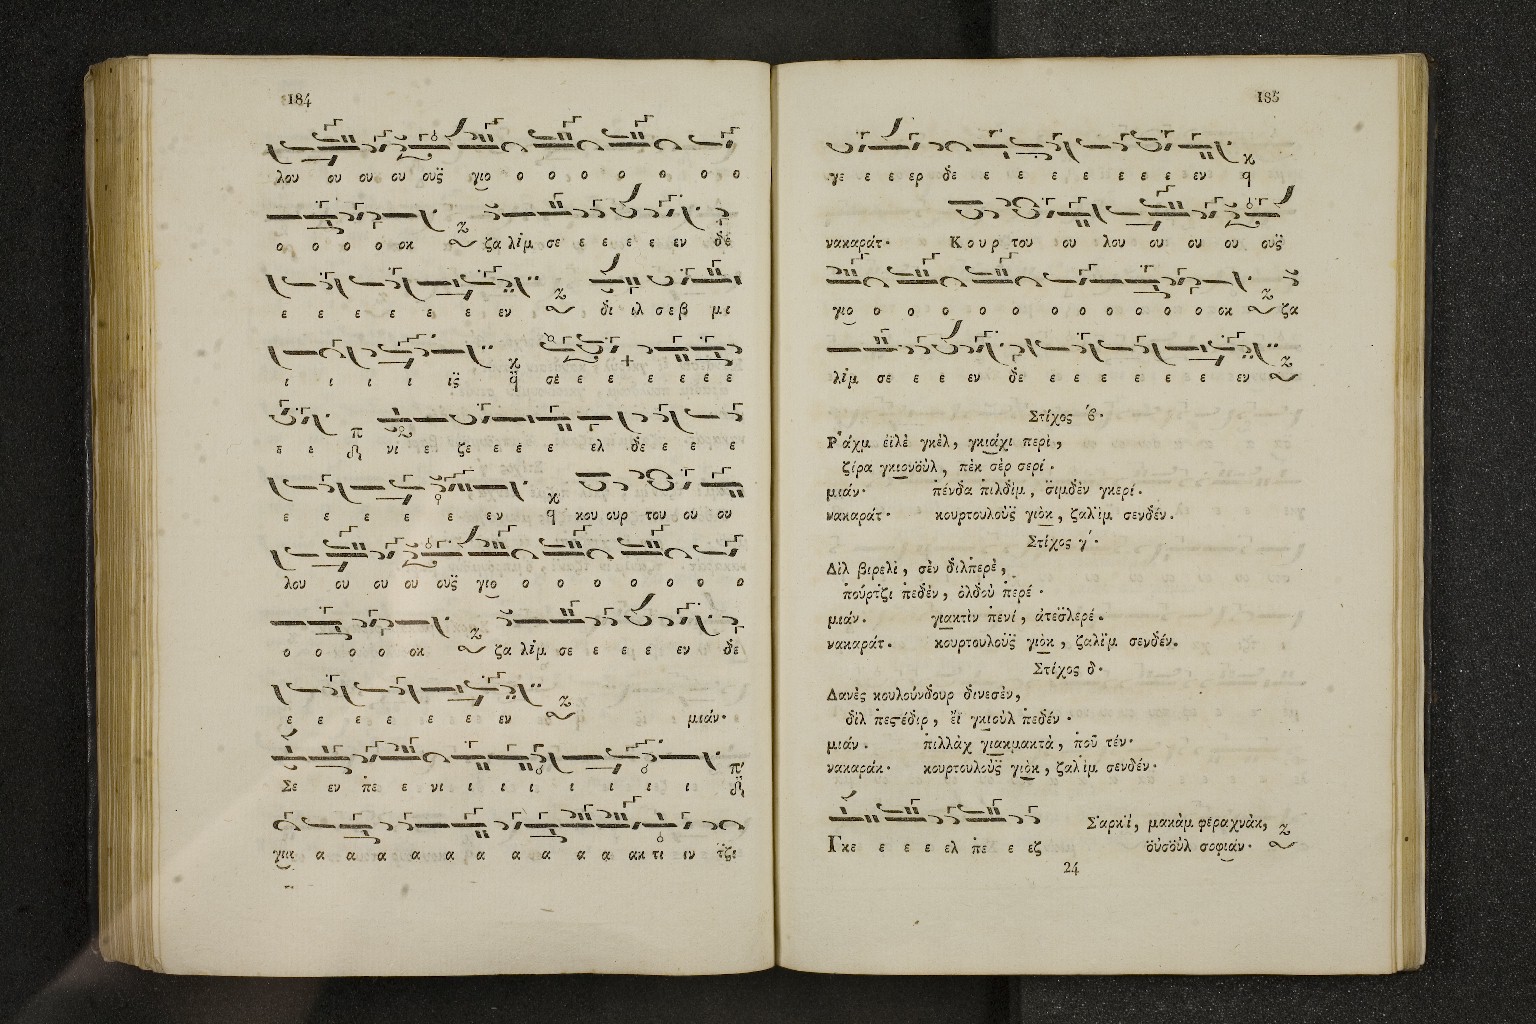 184
λου ου ου ου ους̈ γιο ο ο ο ο ο ο ο
ο ο ο ο οκ ζα λὶμ σε ε ε ε ε εν δε
ε ε ε ε ε ε εν δι ιλ σεβ μι
ι ι ι ι ις̈ σὲ ε ε ε ε ε ε
ε ε νι ε ζε ε ε ε ελ δε ε ε ε
ε ε ε ε ε εν κου ουρ του ου ου
λου ου ου ου ους̈ γιο ο ο ο ο ο ο ο
ο ο ο ο οκ ζα λὶμ σε ε ε ε εν δε
ε ε ε ε ε ε εν μιάν·
Σε εν πε ε νι ι ι ι ι ι ι ι
για α α α α α α α α α ακ τι ιν τζι
185
γε ε ε ερ δε ε ε ε ε ε ε ε εν
νακαράτ· Κουρ του ου λου ου ου ου ους̈
γιο ο ο ο ο ο ο ο ο ο ο οκ ζα
λὶμ σε ε ε εν δε ε ε ε ε ε ε εν
Στίχος β·
Ῥάχμ ἐϊλὲ γκὲλ, γκιάχι περὶ,
ζίρα γκιονοὺλ, πὲκ σὲρ σερί.
μιάν· πένδα πιλδὶμ, σιμδὲν γκερί.
νακαράτ· κουρτουλοὺς̈ γιὸκ, ζαλὶμ σενδέν.
Στίχος γ΄.
Δὶλ βιρελὶ, σὲν διλπερὲ,
πούρτζι πεδὲν, ὀλδοὺ περέ·
μιάν. γιακτὶν πενί, ἀτες̈λερέ.
νακαράτ. κουρτουλοὺς̈ γιὸκ, ζαλὶμ σενδέν.
Στίχος δ·
Δανὲς κουλούνδουρ δινεσὲν,
δὶλ πεςέδιρ, ἒϊ γκιοὺλ πεδέν·
μιάν. πιλλὰχ γιακμακτὰ, ποῦ τέν·
νακαράκ· κουρτουλοὺς̈ γιὸκ, ζαλὶμ σενδέν·
Γκε ε ε ε ελ πε ε εζ
Σαρκὶ, μακὰμ φεραχνὰκ,
οὐσοὺλ σοφιάν·
24